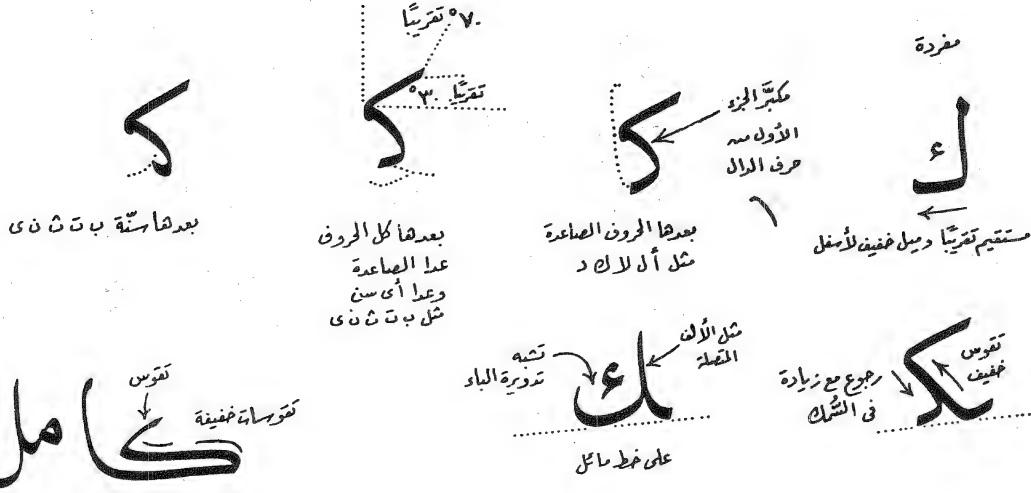 مفردة
ك
مستقيم تقريبًا وميل خفيف لأسفل
مكبَّر الجزء
الأول من
حرف الدال
بعدها الحروف الصاعدة
مثل أ ل لا ك د
٧٠° تقريبًا
٣٠° تقريبًا
بعدها كل الحروف
عدا الصاعدة
وعدا أى سن
مثل ب ت ث ن ى
بعدها سنّة ب ت ث ن ى
تقوس
خفيف
رجوع مع زيادة
فى السُّمك
مثل الألف
المتصلة
تشبه
تدويرة الباء
على خط مائل
تقوس
تقوسات خفيفة
كامل